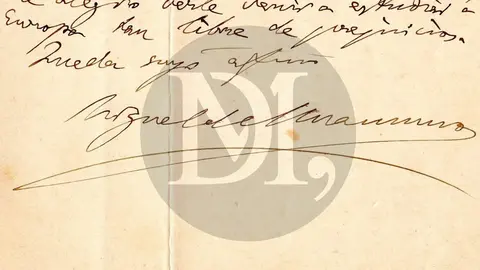 a alegro verle venir a estudiar a
Europa tan libre de prejuicios.
Queda suyo afmo
Miguel de Unamuno
DM,